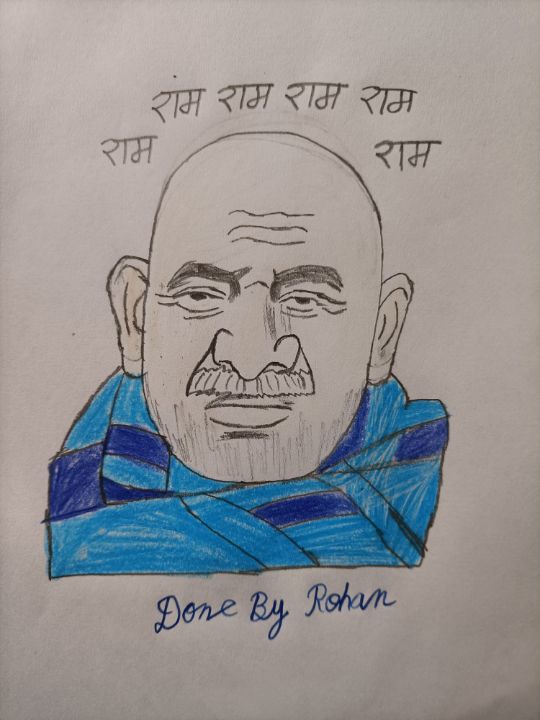 राम राम राम राम
राम राम
Done By Rohan